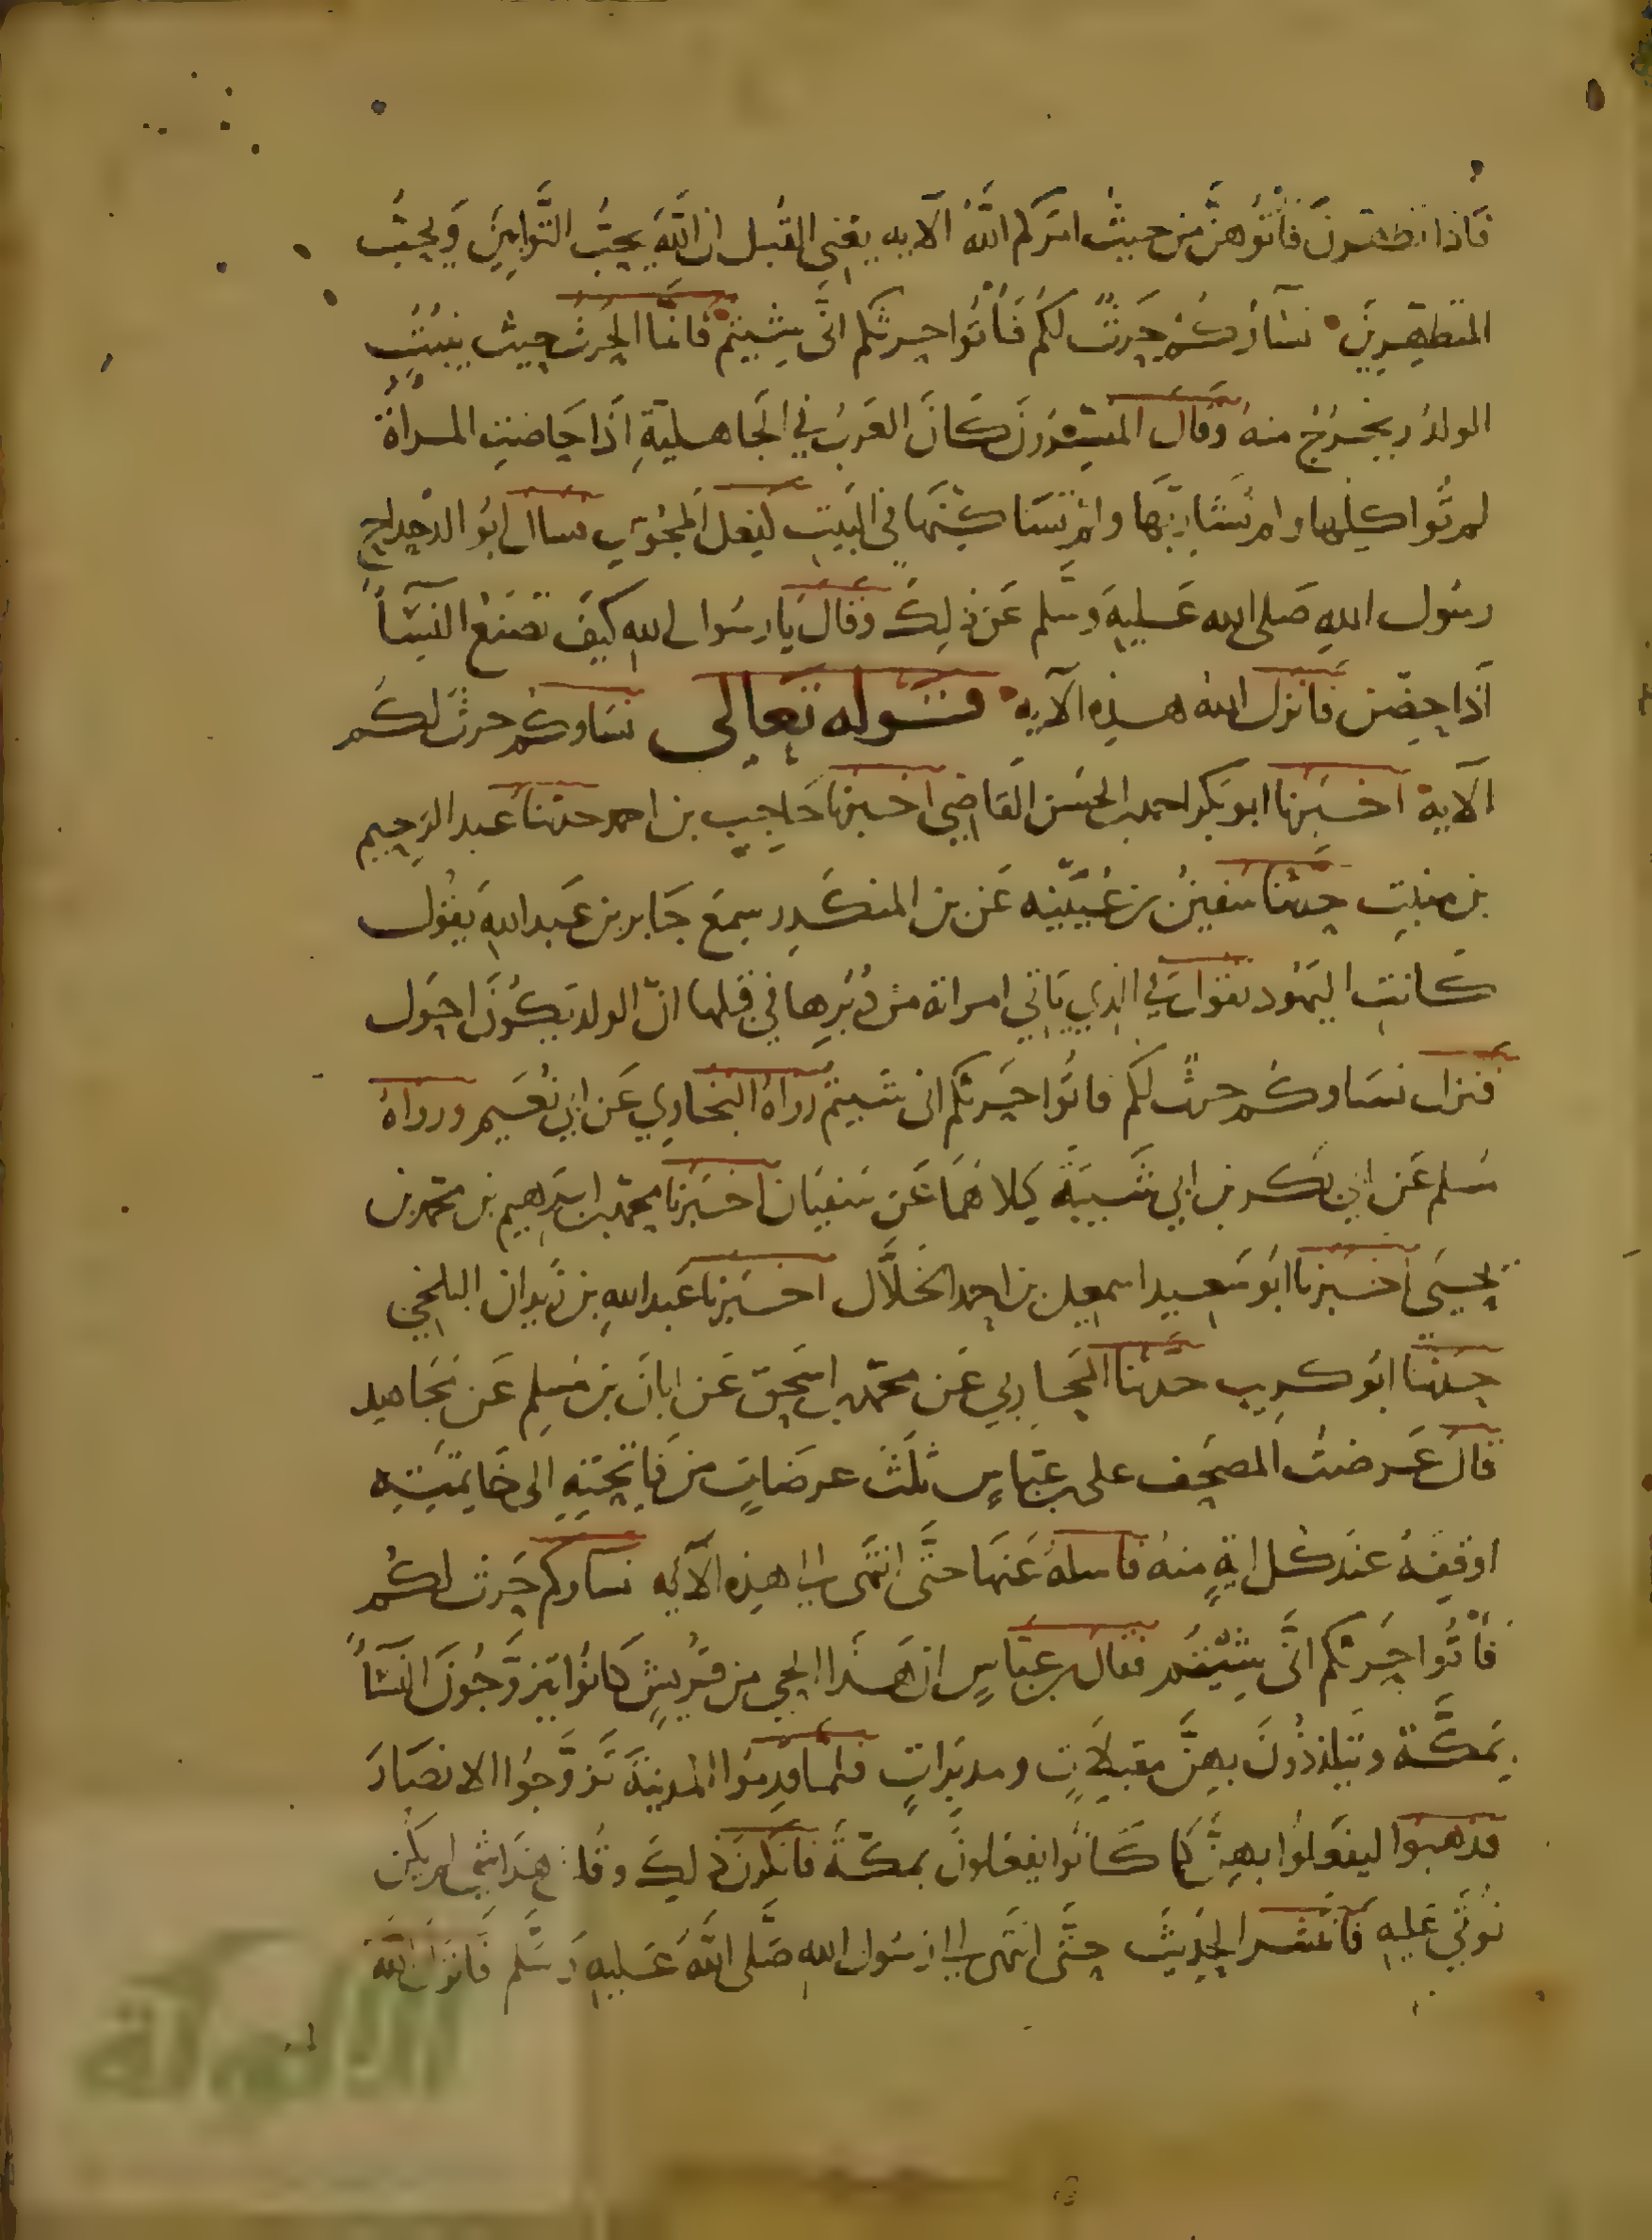 فَاذا تطهرنَ فَأتُوهنَّ من حيثُ امَركم اللَّهُ الآيه يعني القُبل ان اللَّهَ يحبُّ التَّوابينَ وَيحبُّ
المتطهِّرِينَ نسَآؤكُم حَرثٌ لكُم فَأتُوا حرثكم انَّى شِيتم فَانما الحرثُ حيث ينبُتُ
الولدُ ويخرُجُ منهُ وَقال المفسِّرُونَ كَانَ العَربُ في الجَاهليَّةِ اذَا حَاضتِ المراةُ
لم تُواكلها ولم تُشَاربَها ولم تسَاكنَها في البَيتِ كفِعل المجُوسِ فسال ابُو الدَّحداحِ
رسُول اللهِ صَلى الله عَليهِ وسَّلم عَن ذلِكَ وَقالَ يَا رسُول اللهِ كيفَ نصَنعُ النسَآ
اذَا حِضنَ فَانزل اللهُ هذِه الآيه قوله تَعالى نسَاوكُم حرثٌ لكُم
الآية اخبَرنا ابو بَكر احمد بن الحسَن القَاضِي اخبرَنا حَاجب بن احمد حدثنا عَبد الرَّحِيم
بن منيبِ حدثنا سفينُ بن عُيَيْنه عَن بن المنكَدِر سمِعَ جَابر بن عَبد اللهِ يقُول
كَانتِ اليَهُود تقول في الذِي يَاتي امراته من دُبُرِها في قبلها انّ الولد يكُونُ احوَل
فنزل نسَاوكُم حرثٌ لكم فاتُوا حَرثكم انى شيتم رَواهُ البخَارِي عَن ابي نُعَيم ورواهُ
مسُلم عَن ابي بكر بن ابي شَيبَةَ كِلاهُمَا عَن سفيَان اخبَرنا محمَّد بن ابرَهِيم بن محمّد بن
يحيَى اخبَرنا ابُو سَعيد اسمعِيل بن احمد الخَلاَّل اخبَرنا عَبد اللهِ بن زَيدان البلخِي
حدثنا ابُو كريب حدَّثنا المحَاربي عَن محمّد بن اسحق عَن ابانَ بن مسُلِم عَن مجَاهِد
قالَ عَرضتُ المصحَف على بن عبّاسٍ ثلثَ عرضَاتٍ من فَاتِحتِهِ الى خَاتِمَتِه
اوقِفهُ عندَ كُل ايةٍ منهُ فاسلهُ عَنهَا حتَّى انتهَى الى هذِه الآيه نسَاوكم حَرث لكُم
فَأتُوا حَرثكم انَّى شِيتُم فقالَ بن عبَّاسٍ ان هَذَا الحي من قرَيشٍ كَانُوا يتزوَّجُونَ النسَآ
بمكَّة ويتلذذُونَ بهِنَّ مقبلاتٍ ومدبرَاتٍ فلما قدِمُوا المدينَةَ تَزوَّجوُا الانصَارَ
فذهبوا ليفعَلوُا بهِنَّ كما كَانوُا يفعَلونَ بمكّةَ فانكرنَ ذلِكَ وقلن هذَا شي لم يكُن
نُوتَي عَليهِ فَانتَشر الحَدِيثُ حتَّى انتهَى الى رسُول اللهِ صَلَّى اللَّهُ عَليهِ وَسَّلم فَانزل اللَّهُ